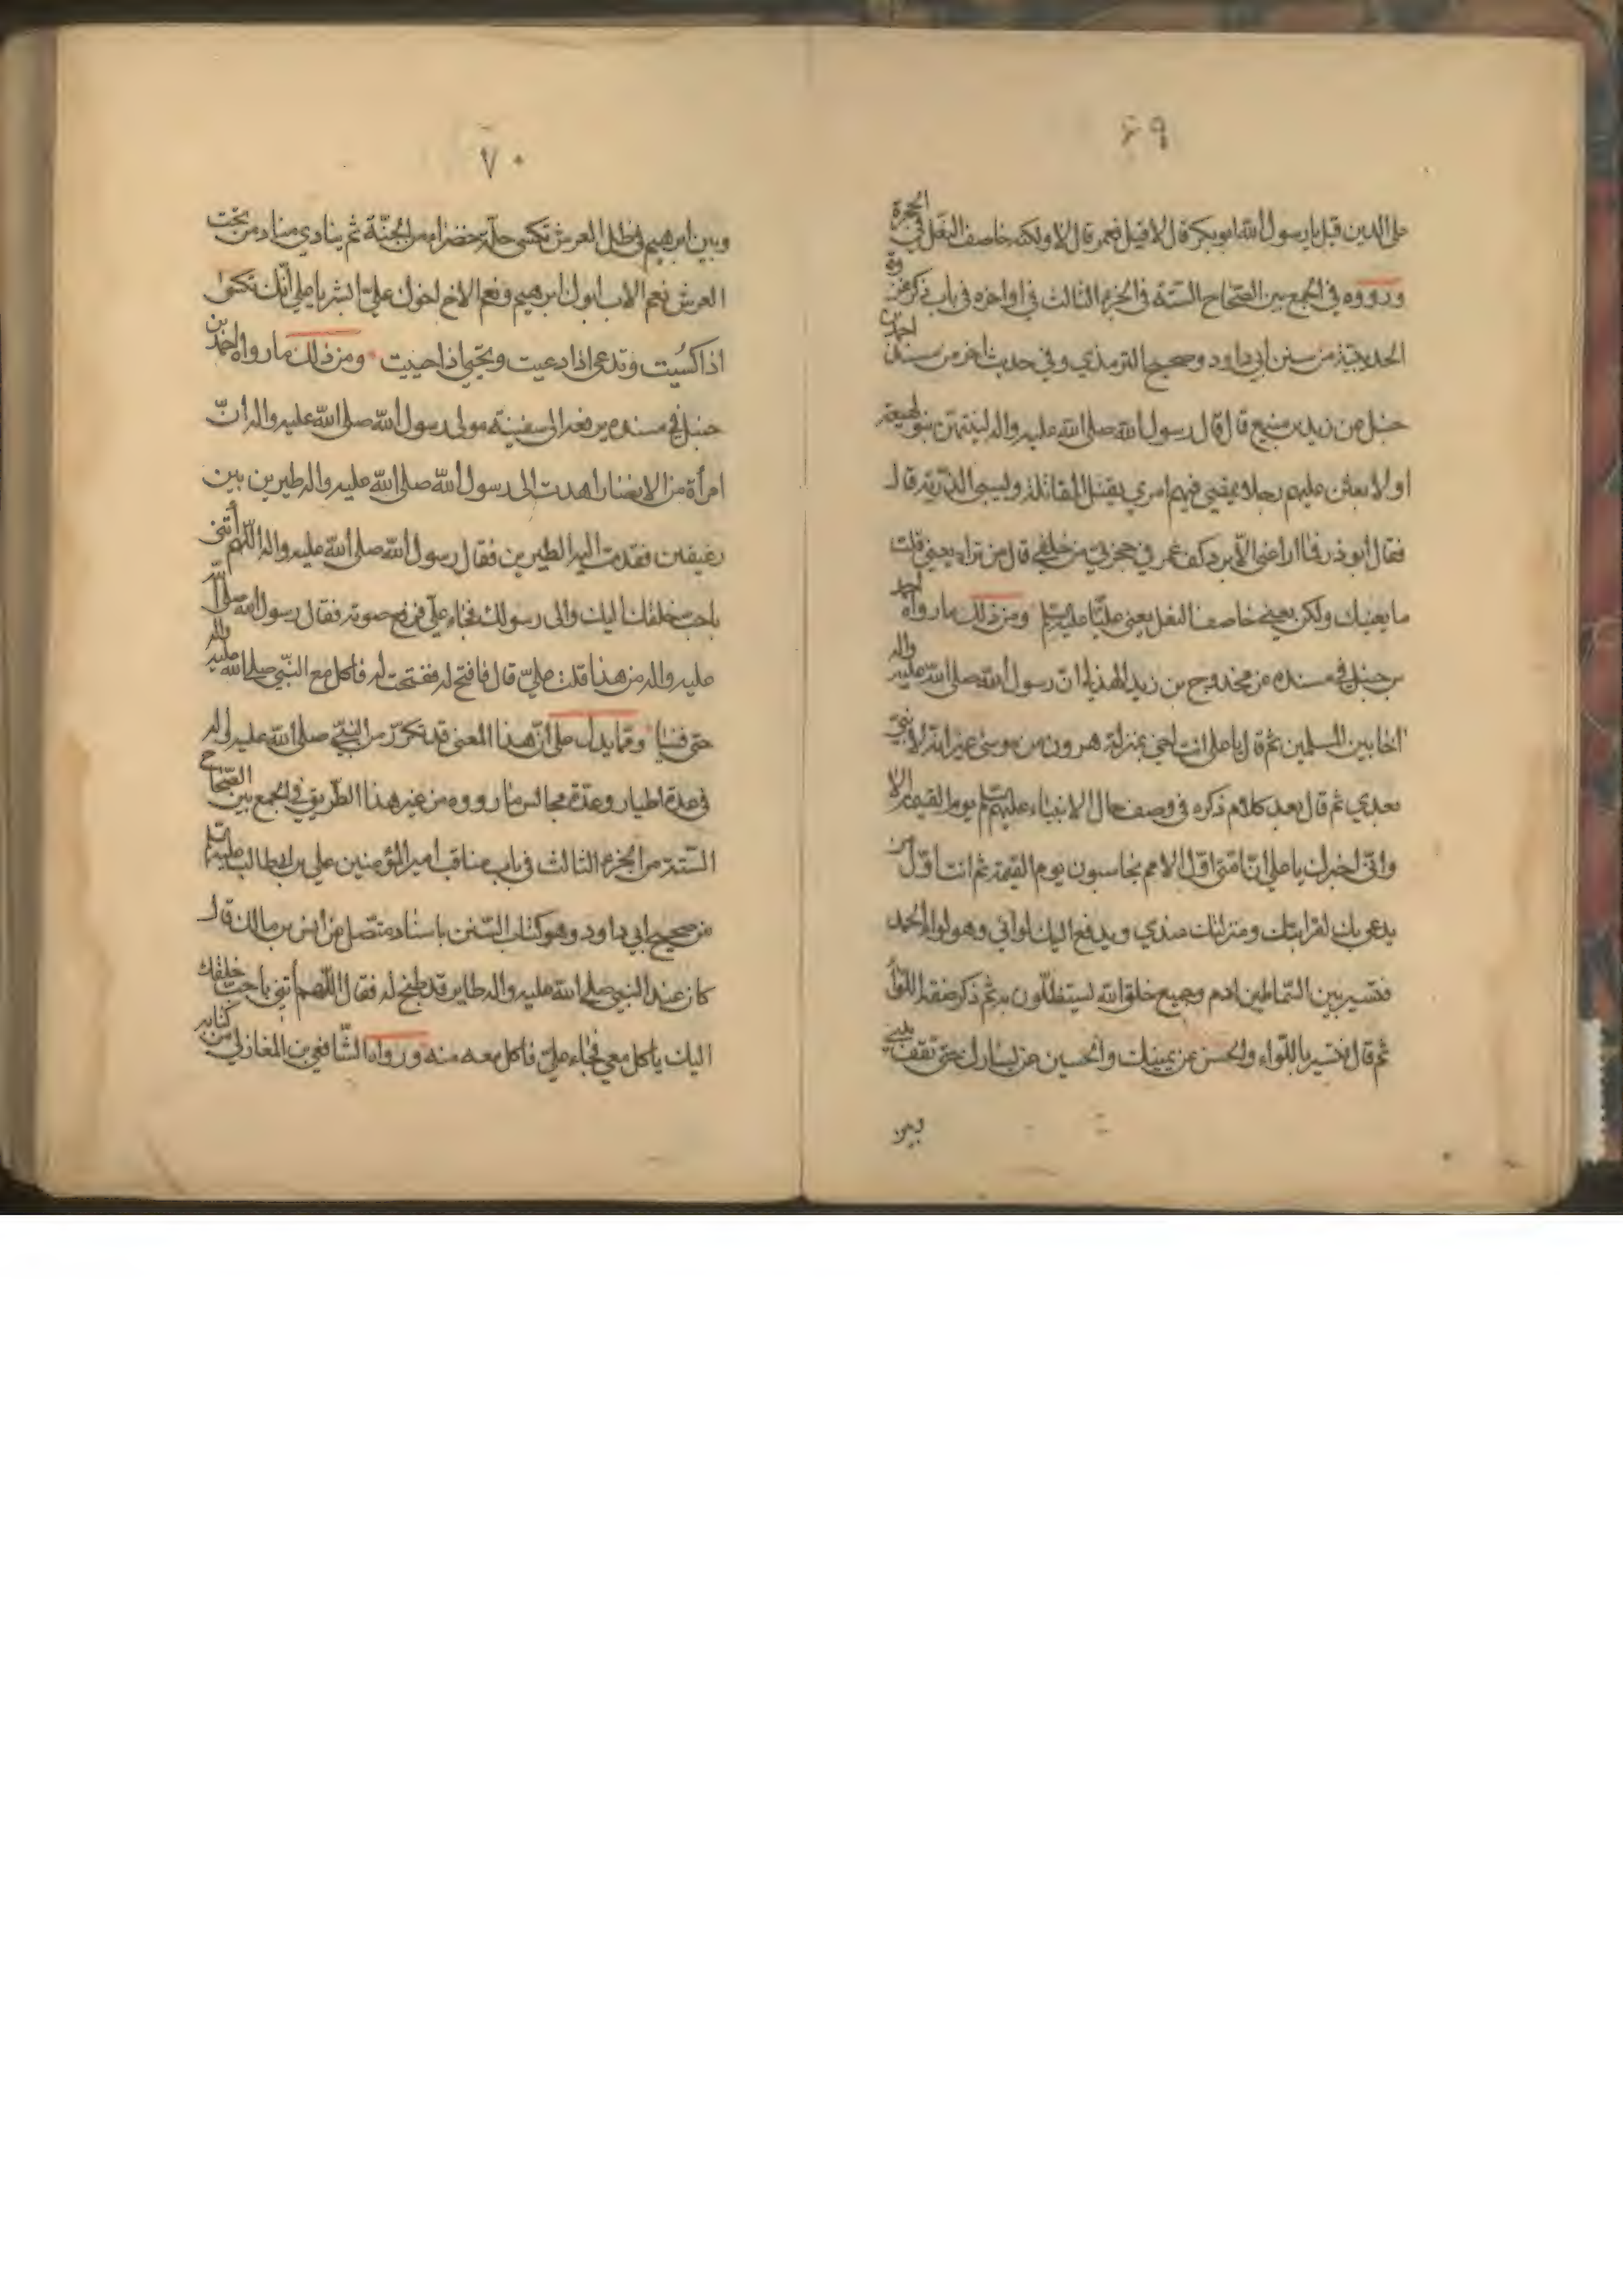 ٦٩
على الدين قيل يا رسول الله ابو بكر قال لا قيل فعمر قال لا ولكنه خاصف النعل في الحجرة
ورووه في الجمع بين الصحاح الستة في الجزء الثالث في اواخره في باب ذكر غزوة
الحديبية من سنن ابي داود وصحيح الترمذي وفي حديث اخر من مسند احمد بن
حنبل عن زيد بن منيع قال قال رسول الله صلى الله عليه واله لينتهين بنو لهيعة
او لابعثن عليهم رجلا يمضي فيهم امري يقتل المقاتلة ويسبي الذرية قال
فقال ابو ذر فما راعني الا برد كف عمر في حجزتي من خلفي قال من تراه يعني قلت
ما يعنيك ولكن يعني خاصف النعل يعني عليا عليه السلم ومن ذلك ما رواه احمد
بن حنبل في مسنده عن مخدوج بن زيد الهذلي ان رسول الله صلى الله عليه واله
اخا بين المسلمين ثم قال يا علي انت اخي بمنزلة هرون من موسى غير انه لا نبي
بعدي ثم قال بعد كلام ذكره في وصف حال الانبياء عليهم السلم يوم القيمة الا
واني اخبرك يا علي ان امتي اول الامم يحاسبون يوم القيمة ثم انت اول من
يدعى بك لقرابتك ومنزلتك عندي ويدفع اليك لوائي وهو لواء الحمد
فتسير بين السماطين ادم وجميع خلق الله يستظلون به ثم ذكر صفة اللواء
ثم قال فتسير باللواء والحسن عن يمينك والحسين عن يسارك حتى تقف بيني
وبين
٧٠
وبين ابرهيم في ظل العرش تكسى حلة خضراء من الجنة ثم ينادي مناد من تحت
العرش نعم الاب ابوك ابرهيم ونعم الاخ اخوك علي ابشر يا علي انك تكسى
اذا كسيت وتدعى اذا دعيت وتحيى اذا حييت ومن ذلك ما رواه احمد بن
حنبل في مسنده يرفعه الى سفينة مولى رسول الله صلى الله عليه واله ان
امرأة من الانصار اهدت الى رسول الله صلى الله عليه واله طيرين بين
رغيفين فقدمت اليه الطيرين فقال رسول الله صلى الله عليه واله اللهم أتني
باحب خلقك اليك والى رسولك فجاء علي فرفع صوته فقال رسول الله صلى الله
عليه واله من هذا قلت علي قال فافتح له ففتحت له فاكل مع النبي صلى الله عليه واله
حتى فنيا ومما يدل على ان هذا المعنى قد تكرر من النبي صلى الله عليه واله
في عدة اطيار وعدة مجالس ما رووه من غير هذا الطريق في الجمع بين الصحاح
الستة من الجزء الثالث في باب مناقب امير المؤمنين علي بن ابيطالب عليه السلم
من صحيح ابي داود وهو كتاب السنن باسناد متصل عن انس بن مالك قال
كان عند النبي صلى الله عليه واله طاير قد طبخ له فقال اللهم أتني باحب خلقك
اليك ياكل معي فجاء علي فاكل معه منه ورواه الشافعي بن المغازلي من كتابه